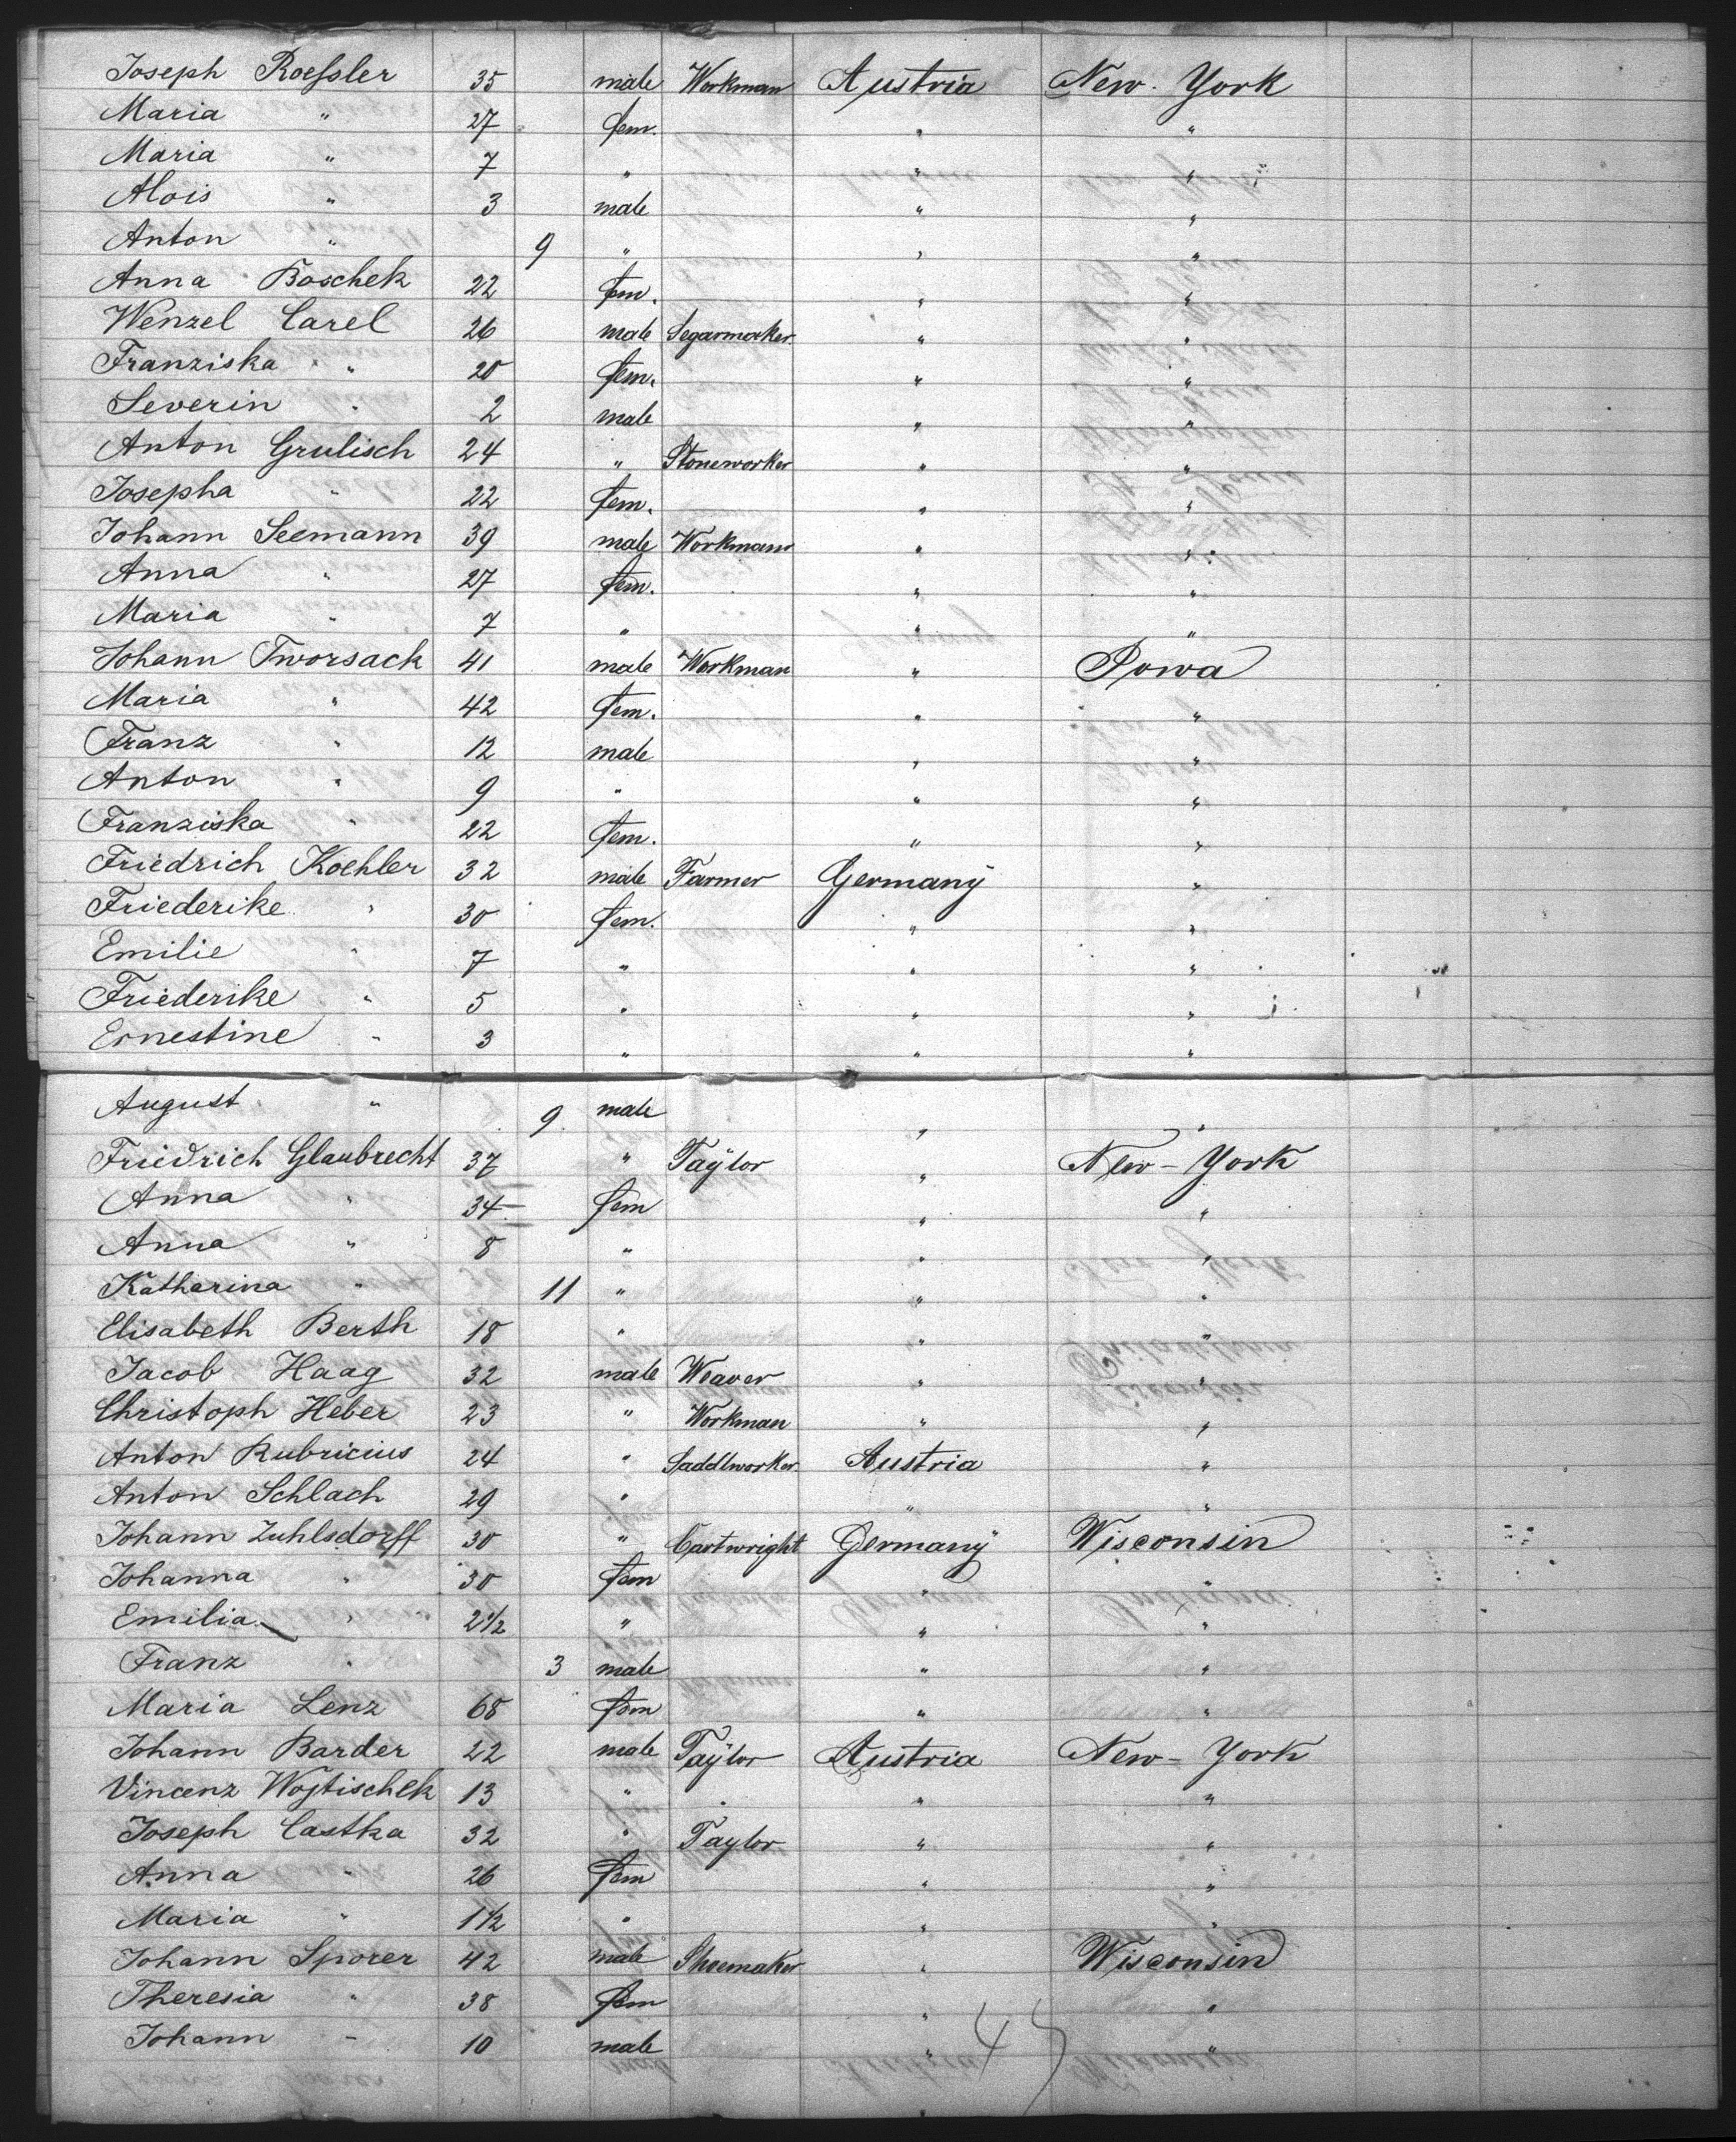 Joseph Roessler 35 male Workman Austria New-York
Maria " 27 fem. " "
Maria " 7 " " "
Alois " 3 male " "
Anton " 9 " " "
Anna Boschek 22 fem. " "
Wenzel Carel 26 male Segarmaker " "
Franziska " 20 fem. " "
Severin " 2 male " "
Anton Grulisch 24 " Stoneworker " "
Josepha " 22 fem. " "
Johann Seemann 39 male Workman " "
Anna " 27 fem. " "
Maria " 7 " " "
Johann Tworsack 41 male Workman " Iowa
Maria " 42 fem. " "
Franz " 12 male " "
Anton " 9 " " "
Franziska " 22 fem. " "
Friedrich Koehler 32 male Farmer Germany "
Friederike " 30 fem. " "
Emilie " 7 " " "
Friederike " 5 " " "
Ernestine " 3 " " "
August " 9 male " "
Friedrich Glaubrecht 37 " Taylor " New-York
Anna " 34 fem " "
Anna " 8 " " "
Katharina " 11 " " "
Elisabeth Berth 18 " " "
Jacob Haag 32 male Weaver " "
Christoph Heber 23 " Workman " "
Anton Rubricius 24 " Saddlworker Austria "
Anton Schlach 29 " " "
Johann Zuhlsdorff 30 " Cartwright Germany Wisconsin
Johanna " 30 fem " "
Emilia " 2 1/2 " " "
Franz " 3 male " "
Maria Lenz 68 fem " "
Johann Barder 22 male Taylor Austria New-York
Vincenz Wojtischek 13 " " "
Joseph Castka 32 " Taylor " "
Anna " 26 fem " "
Maria " 1 1/2 " " "
Johann Sporer 42 male Shoemaker " Wisconsin
Theresia " 38 fem " "
Johann " 10 male " "